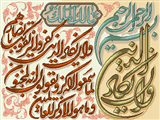 بسم الله الرحمن الرحيم
وإن يكاد
وإن يكاد الذين كفروا ليزلقونك بأبصارهم
لما سمعوا الذكر ويقولون إنه لمجنون
وما هو إلا ذكر للعالمين